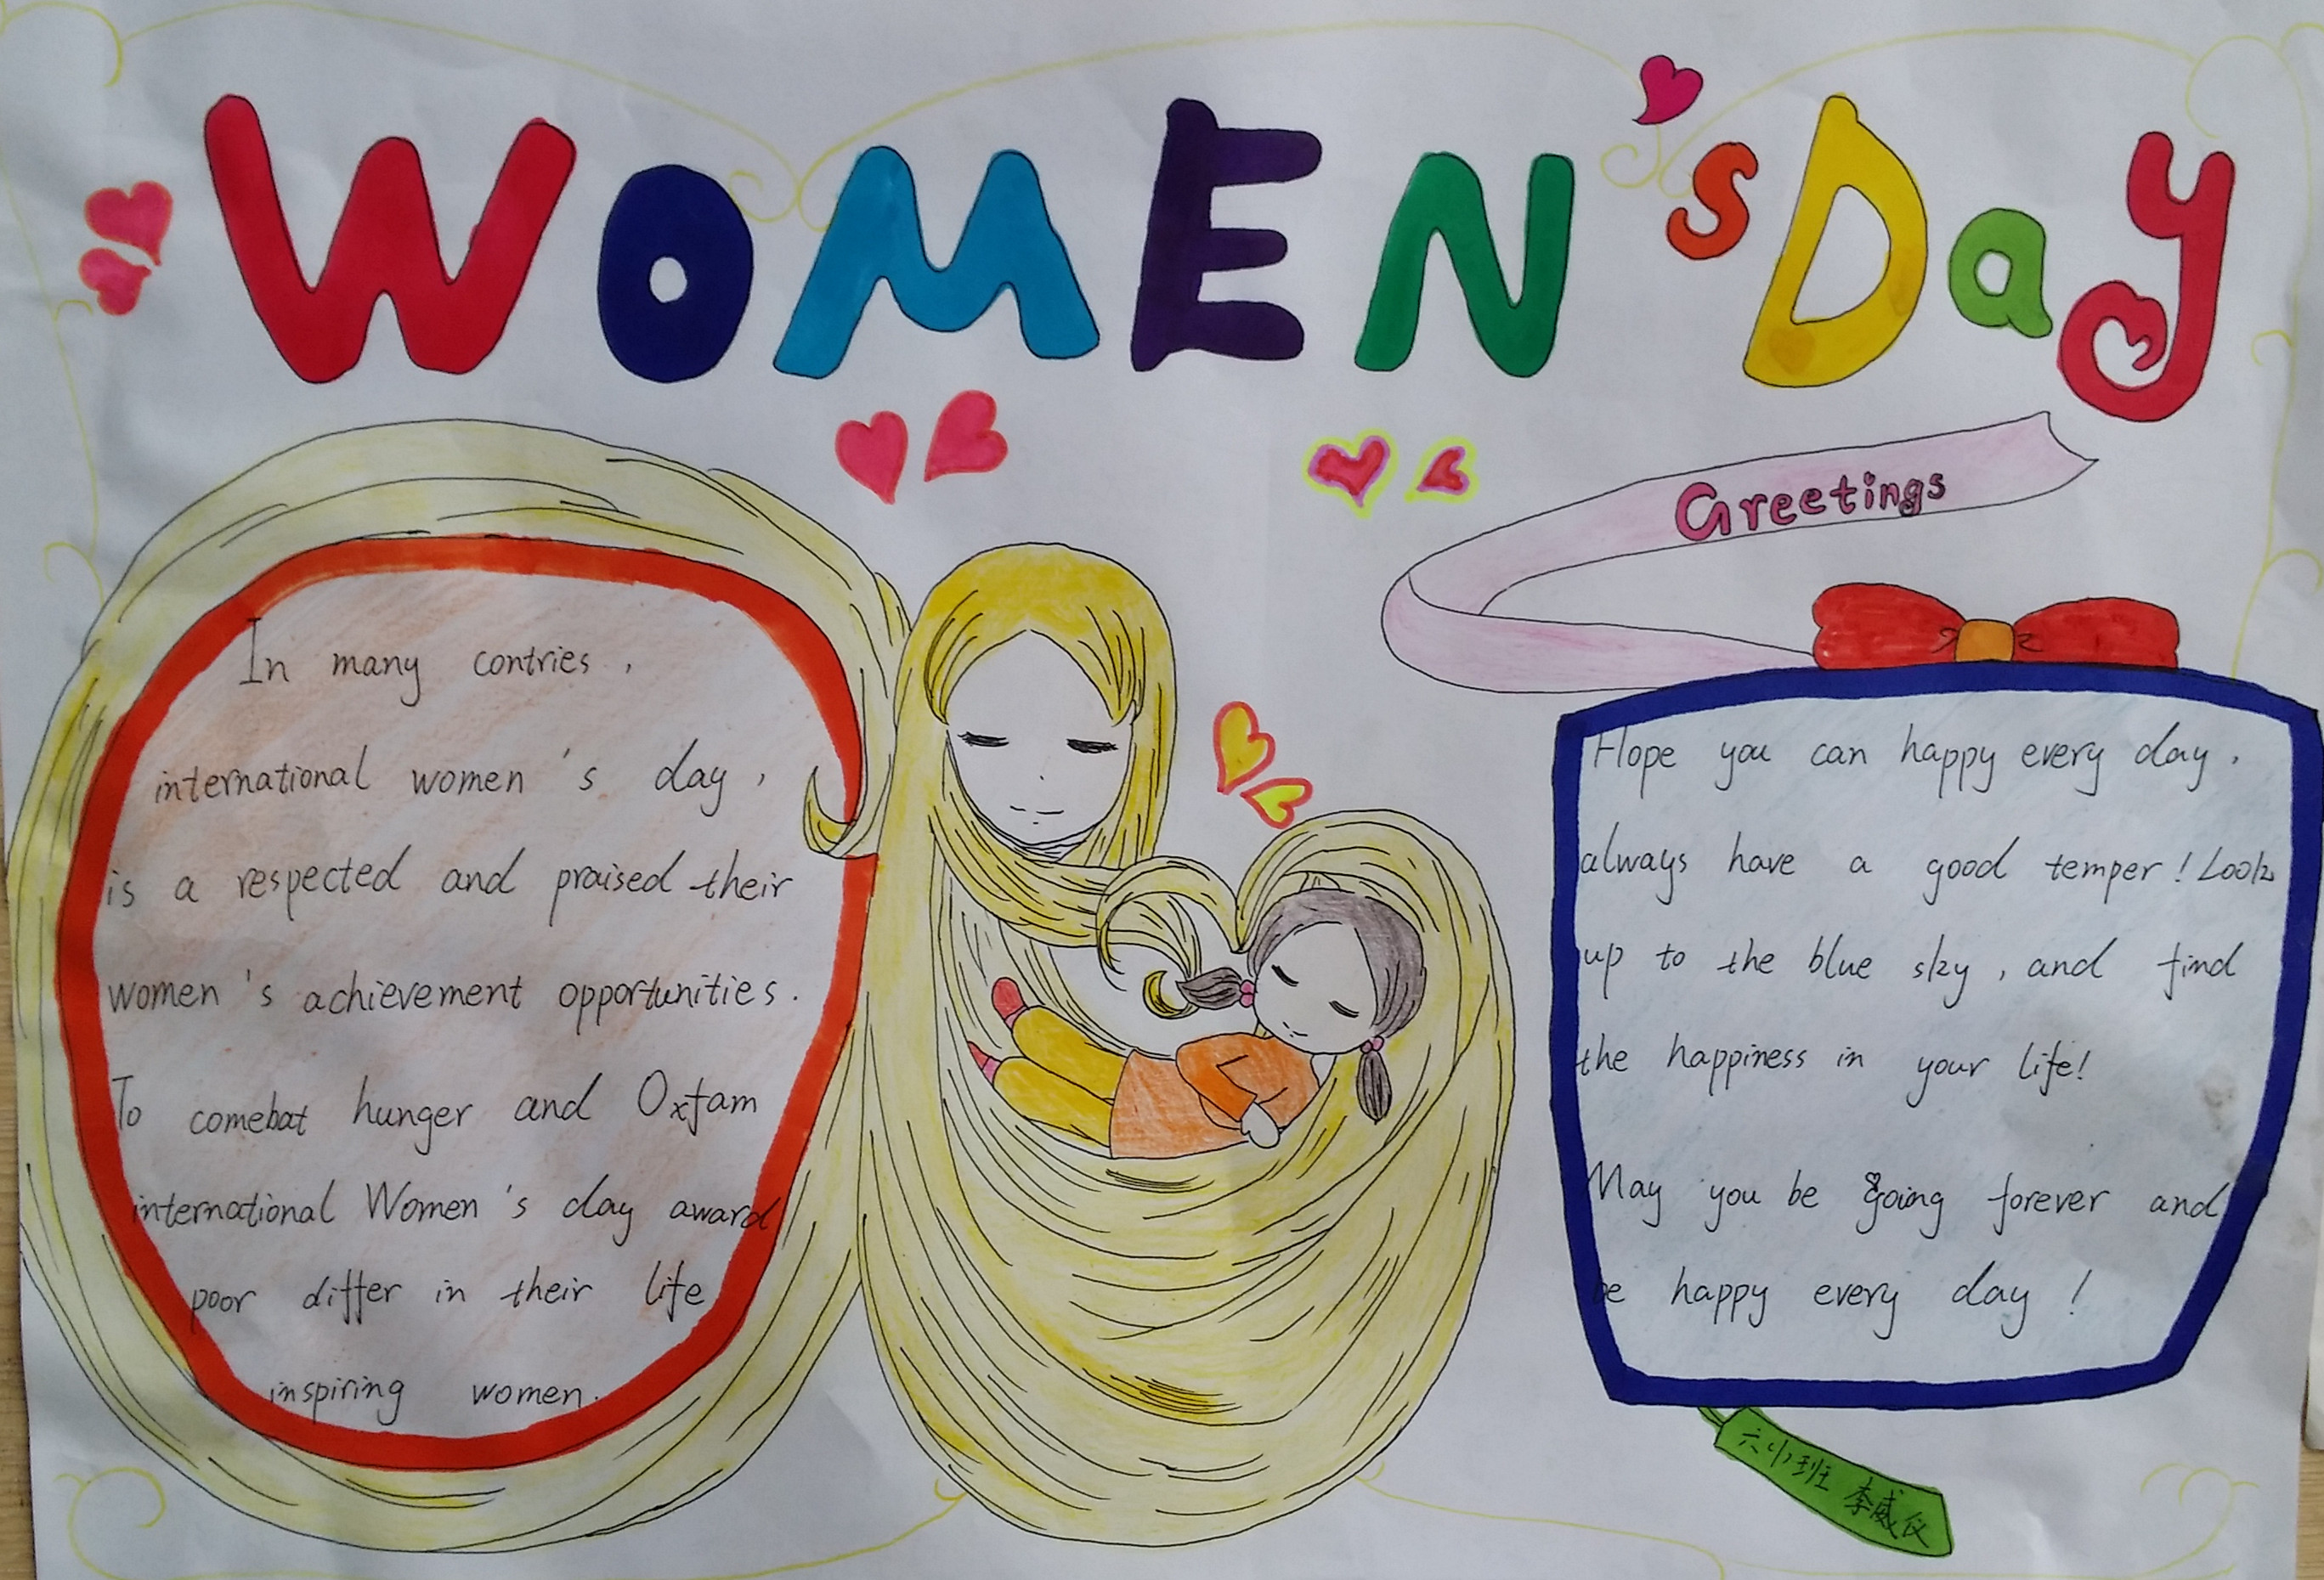 WOMEN'S Day
Greetings
In many contries,
international women's day,
is a respected and praised their
women's achievement opportunities.
To comebat hunger and Oxfam
international Women's day award
poor differ in their life
inspiring women.
Hope you can happy every day,
always have a good temper! Look
up to the blue sky, and find
the happiness in your life!
May you be going forever and
be happy every day!
班 李威仪